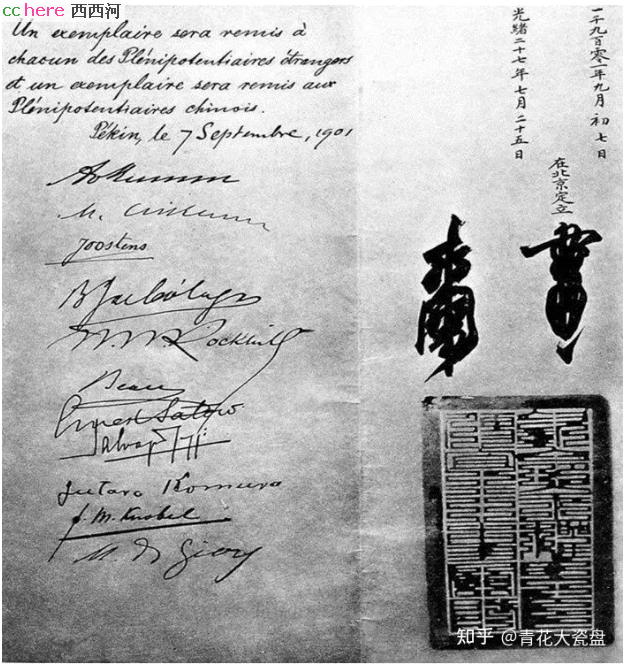 cchere 西西河
Un exemplaire sera remis à
chacun des Plénipotentiaires étrangers
et un exemplaire sera remis aux
Plénipotentiaires chinois.
Pékin, le 7 Septembre, 1901
Joostens
W. W. Rockhill
Beau
Ernest Satow
Salvago Raggi
Jutaro Komura
F. M. Knobel
M. de Giers
一千九百零一年九月初七日
光緒二十七年七月二十五日
在北京定立
知乎 @青花大瓷盘